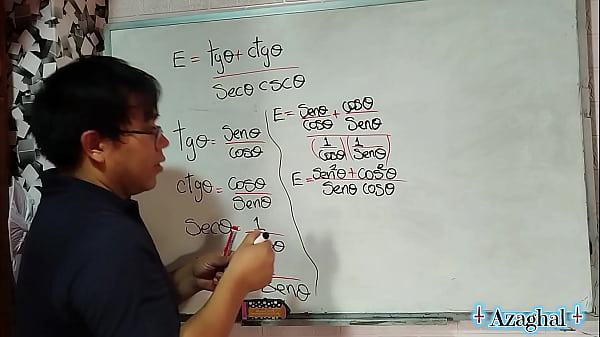 E = tgθ + ctgθ
secθ cscθ
tgθ = senθ
cosθ
ctgθ = cosθ
senθ
secθ = 1
senθ
E = senθ + cosθ
cosθ senθ
(1/cosθ)(1/senθ)
E = sen²θ + cos²θ
senθ cosθ
Azaghal